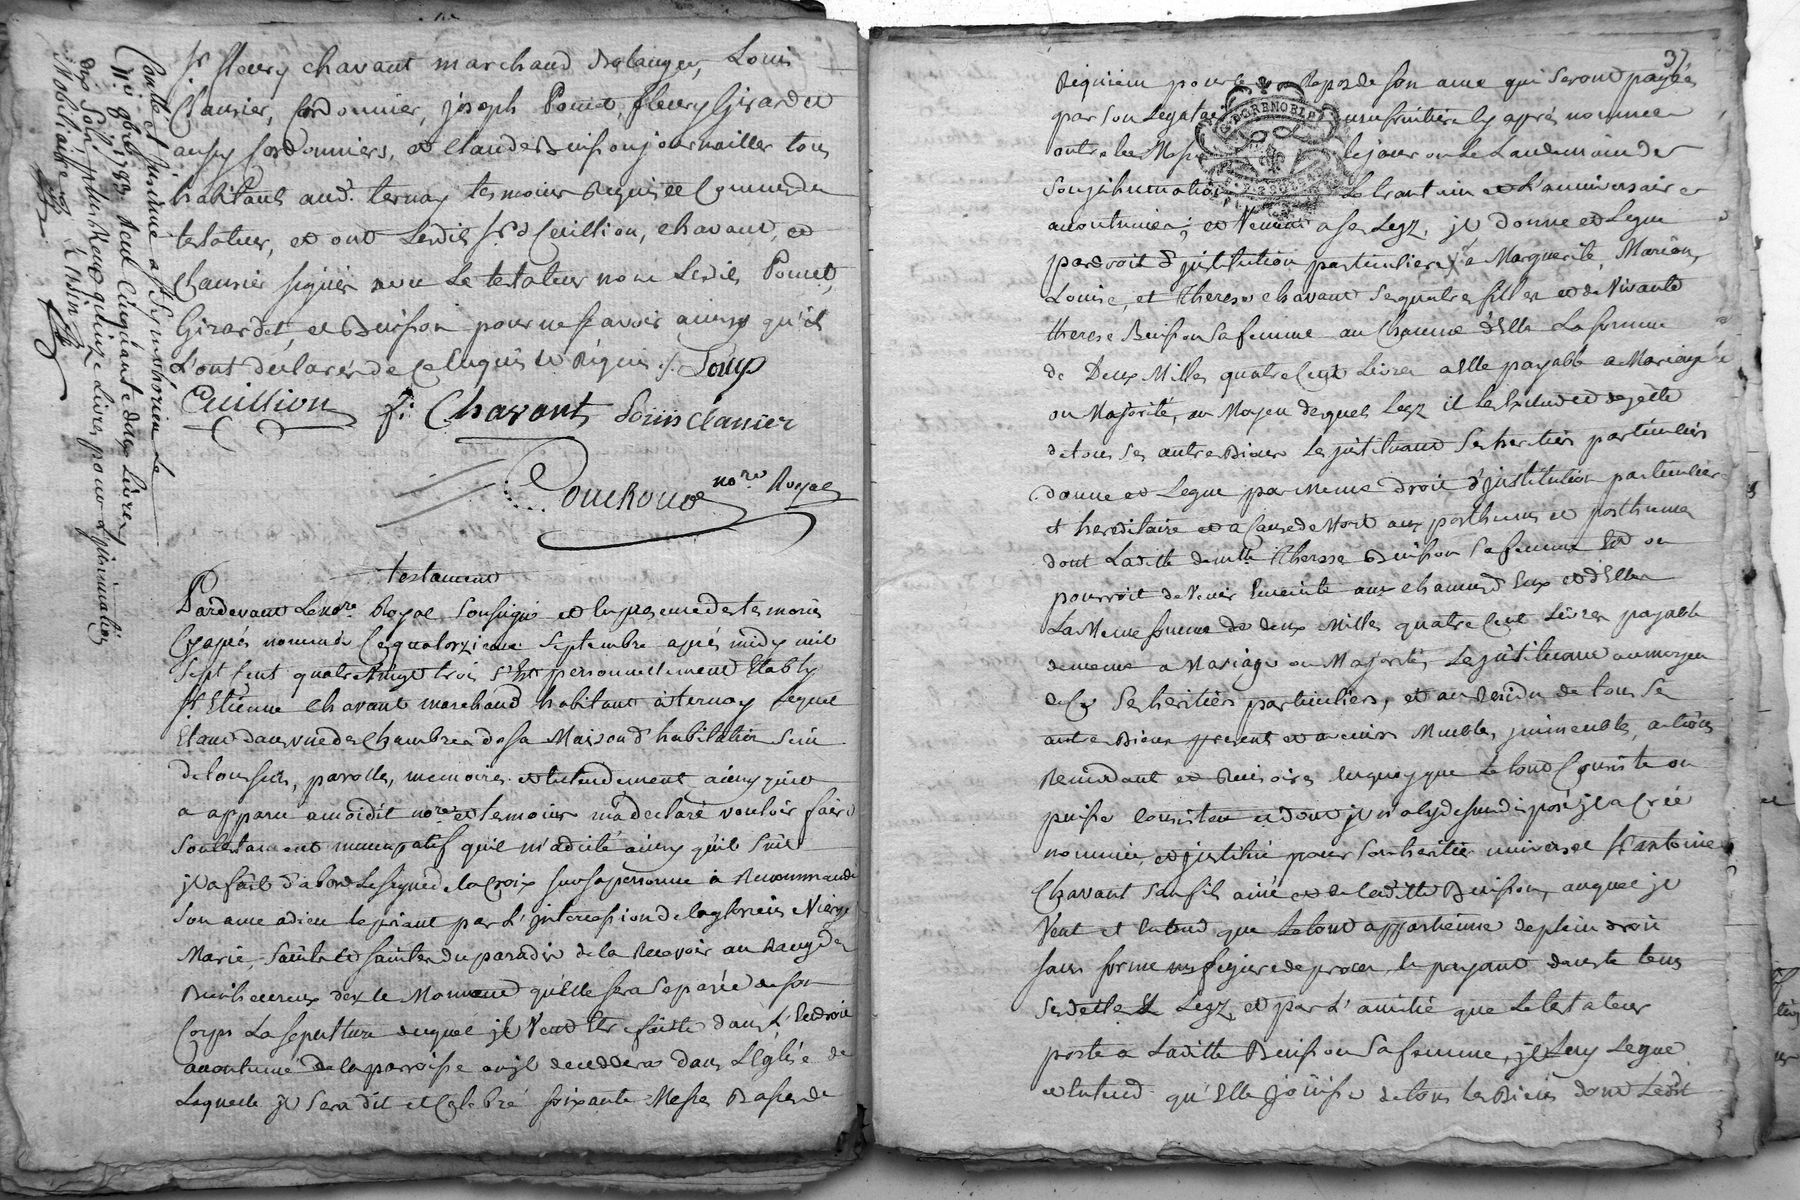 Sr fleury chavant marchand Bolanger, Louis
Clausier, Cordonnier, joseph Pomet, fleury Girardet
aussy Cordonniers, et Claude Buisson journaillier tous
habitants aud. ternay temoins Requis et Connus du
testateur, et ont lesdits Srs Cuillion, chavant, et
Clausier signés avec le testateur non lesdits Pomet,
Girardet, et Buisson pour ne scavoir ainsy qu'ils
l'ont déclarés de ce enquis et Requis ./. Loup
Cuillion fi: Chavant Louis Clausier
nore Royal
Controllé et insinué a St Simphorien le
9bre 1783 Recu Cinquante deux Livres
dix Sols plus Recu quinze Livres pour l'insinuation
testament
Pardevant le nore Royal soussigné et en presence des temoins
Cy aprés nommés Ce quatorzieme Septembre aprés midy mil
sept cent quatre vingt trois s'est personnellement Etably
Sr Etienne Chavant marchand habitant à ternay lequel
Etant dans une des Chambres de sa Maison d'habitation Sain
de tous sens, parolles, memoires et entendement ainsy qu'il
a apparu audit nore et temoins m'a declaré vouloir faire
son testament nuncupatif qu'il m'a dicté ainsy qu'il suit
il a fait d'abord le signe de la Croix sur sa personne à Recommandé
son ame a dieu le priant par l'intercession de la glorieuse Vierge
Marie, Saints et saintes du paradis de la Recevoir au Rang des
Bienheureux des le Moment qu'elle sera Separée de son
Corps la sepulture duquel il Veut Etre faitte dans l'Endroit
acoutumé de la parroisse ou il decedera dans l'Eglise de
laquelle il sera dit et Celebré soixante Messes Basses de
37
Requiem pour le Repos de son ame qui seront payées
par son usufruitiere cy aprés nommée
outre les Messes le jour ou le Landemain de
Son inhumation Le trantain et l'anniversaire
acoutumés; et Venant a ses Legz, il donne et Legue
par droit d'institution particuliere à Marguerite, Marion,
Louise, et therese chavant ses quatre filles et de Vivante
therese Buisson sa femme a Chacune d'Elle La somme
de Deux Milles quatre Cent Livres a Elle payable a Mariage
ou Majorité, au Moyen desquels Legz il les Exclud et dejette
de tous ses autres Biens les instituant ses heritiers particuliers
donne et Legue par Meme droit d'institution particuliere
et hereditaire et a Cause de Mort aux posthumes et posthumes
dont Laditte demlle therese Buisson sa femme Est ou
pourroit deVenir Enceinte aux chacuns d'Eux et d'Elles
La Meme somme de deux Milles quatre Cent Livres payable
de meme a Mariage ou Majorité, les instituant au moyen
de Ce ses heritiers particuliers, et au Residu de tous ses
autres Biens presents et avenirs Meubles, immeubles, actions
Rescindant et Rescisoires en quoyque le tout Consiste ou
puisse Consister et dont il n'a cy dessus disposé il a Créé
nommé, et institué pour son heritier universel Sr antoine
Chavant Son fils ainé et de laditte Buisson, auquel il
Veut et Entend que le tout appartienne de plein droit
sans forme ny figure de proces, en payant dans le tems
ses dettes et Legz, et par l'amitié que le testateur
porte a Laditte Buisson sa femme, il Luy Legue
et Entend qu'Elle joüisse de tous les Biens dont Ledit